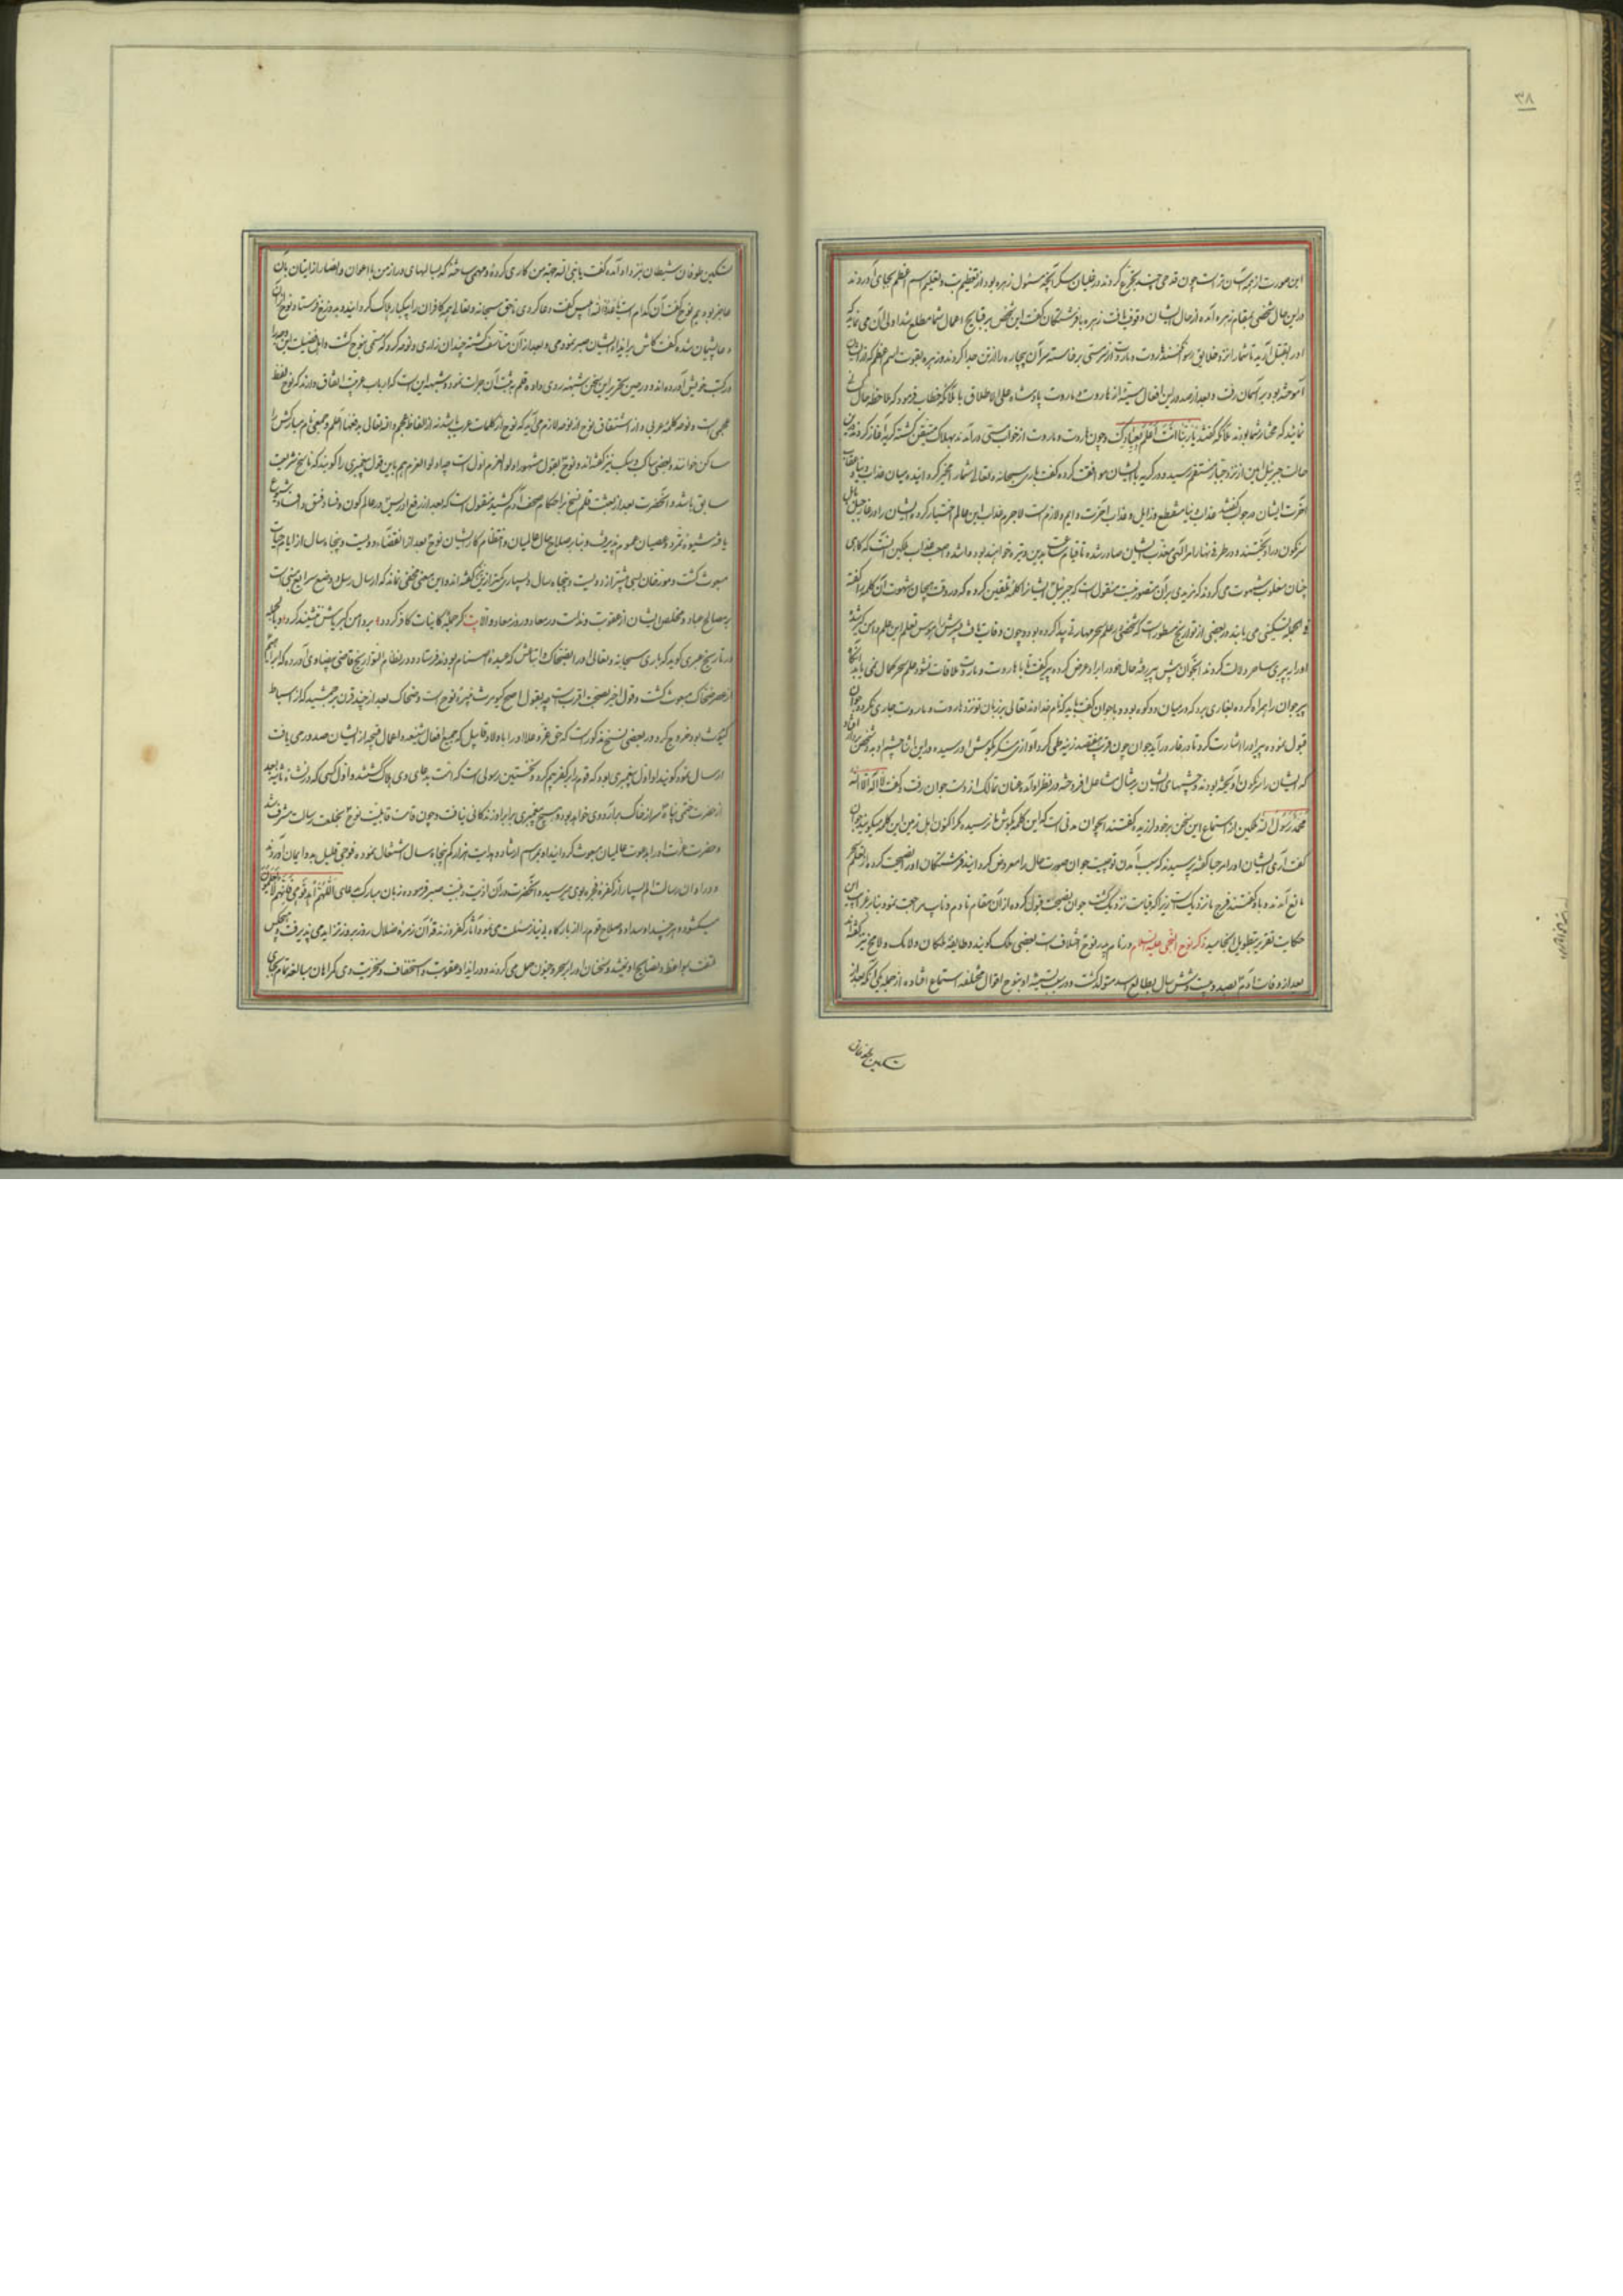 ۳۸
این صورت از همه آسان تر است چون قدحی چند تجرع کردند در غلیان سکر آنچه مسئول زهره بود از تعظیم بت و تعلیم اسم اعظم بجای آوردند
در این حال شخصی بمقام زهره آمده از حال ایشان وقوف یافت زهره با فرشتگان گفت این شخص بر قبایح اعمال شما مطلع شد اولی آن می نماید که
او را بقتل آرید تا شما را نزد خلایق هاروت و ماروت از سر مستی برخاسته سر آن بیچاره را از تن جدا کردند و زهره بقوت اسم اعظم که از ایشان
آموخته بود بر آسمان رفت و بعد از صدور این افعال سیئه از هاروت و ماروت پادشاه علی الاطلاق با ملائکه خطاب فرمود که ملاحظه حال
نمائید که مختار شما بودند ملائکه گفتند یا ربنا انت اعلم بعبادک و چون هاروت و ماروت از خواب مستی درآمدند بهلاک متیقن گشته گریه آغاز کردند
حالت جبرئیل امین از نزد جبار منتقم رسید و در گریه با ایشان موافقت کرده گفت باری سبحانه و تعالی شما را مخیر گردانیده میان عذاب دنیا و عقاب
آخرت ایشان در جواب گفتند عذاب دنیا منقطع و زایل و عذاب آخرت دایم و لازم است لاجرم عذاب این عالم اختیار کردند ایشان را در غار جبل بابل
سرنگون در آویختند و در طرفی نهار امر الهی بتعذیب ایشان صادر شده تا قیام ساعت بدین وتیره خواهند بود
چنان مغلوب شهوت می گردند که مزیدی بر آن متصور نیست منقول است که جبرئیل ایشان را کلمه تلقین کرده که در وقت هیجان شهوت آن کلمه را گفته
فی الجمله تسکینی می یابند و در بعضی از تواریخ مسطور است که شخصی در علم سحر مهارتی پیدا کرده بود و چون وفات یافت پسرش را هوس تعلم این علم دامن گیر شد
او را به پیری ساحر دلالت کردند آنجوان پیش پیر رفته حال خود را بر او عرض کرد پیر گفت تا با هاروت و ماروت ملاقات نشود علم سحر بکمال نمی یابد آنگاه
پیر جوان را همراه کرده بغاری برد که در میان دو کوه بود و با جوان گفت باید که نام خداوند تعالی بر زبان تو نزد هاروت و ماروت جاری نگردد جوان
قبول نموده پیر او را اشارت کرد تا در غار درآید جوان چون قریب
که ایشان را سرنگون آویخته بودند چشمهای ایشان بر مثال مشاعل افروخته در نظر او آمده عنان تمالک از دست جوان رفت و گفت لا اله الا الله
محمد رسول الله ملکین از استماع این سخن بر خود لرزیده گفتند ایجوان مدتی است که این کلمه بگوش ما نرسیده مگر اکنون اهل زمین این کلمه میگویند جوان
گفت آری ایشان او را مرحبا گفته پرسیدند که سبب آمدن تو چیست جوان صورت حال را معروض گردانید فرشتگان او را نصیحت کرده از تعلم سحر
مانع آمدند و با او گفتند فرج ما نزدیک است زیرا که قیامت نزدیک گشت جوان نصیحت قبول کرده از آن مقام نادم و تایب مراجعت نمود
حکایت تقریر بتطویل انجامید ذکر نوح النجی علیه السلام در نام پدر نوح اختلاف است بعضی ملک گویند و طایفه ملکان و لامک و لامخ نیز گفته اند
بعد از وفات آدم بصد و بیست و شش سال بطالع اسد متولد گشت و در سبب تسمیه او بنوح اقوال مختلفه استماع افتاده از جمله یکی آنکه بعد از
تسکین طوفان
تسکین طوفان شیطان نزد او آمده گفت یا نبی الله جهت من کاری کرده و مهمی ساخته که سالهای دراز من با اعوان و انصار از اتیان بآن
عاجز بودیم نوح گفت آن کدام است یا عدو الله ابلیس گفت دعا کردی تا حق سبحانه و تعالی همه کافران را بیکبار هلاک گردانیده بدوزخ فرستاد نوح از آن
دعا پشیمان شده گفت کاش بر ایذاء ایشان صبر نمودمی و بعد از آن متأسف گشته چندان زاری و نوحه کرد که مسمی بنوح گشت
در کتب خویش آورده اند و در حین تحریر این سخن شبهه روی داده قلم به ثبت آن جرأت نمود و شبهه این است که ارباب عربیت اتفاق دارند که نوح لفظ
عجمی است و نوحه کلمه عربی و از اشتقاق نوح از نوحه لازم می آید که نوح از کلمات عرب باشد نه از الفاظ عجم و الله تعالی بحقیقتها اعلم و جمعی نام مبارکش را
ساکن خوانند و بعضی ساکب و سکب نیز گفته اند و نوح بقول مشهور اولوا العزم اول است چه اولوا العزم هم باین قول پیغمبری را گویند که ناسخ شریعت
سابق باشد و آنحضرت بعد از بعثت قلم نسخ بر احکام صحف آدم کشید منقول است که بعد از رفع ادریس در عالم کون و فساد فسق و فساد شیوع
یافته شیوه تمرد و عصیان عموم پذیرفت و بنابر صلاح حال عالمیان و انتظام کار ایشان نوح بعد از انقضاء دویست و پنجاه سال از ایام حیات
مبعوث گشت و مورخان لبی بیشتر از دویست و پنجاه سال و بسیار کمتر از این گفته اند و این معنی مخفی نماند که ارسال رسل و وضع شرایع مبنی است
بر مصالح عباد و مخلص ایشان از عقوبت و ندامت در معاد و روز معاد و الا
در تاریخ طبری گوید که باری سبحانه و تعالی او را بضحاک و اتباش که عبده اصنام بودند فرستاد و در نظام التواریخ قاضی بیضاوی آورده که
از عصر ضحاک مبعوث گشت و قول اخیر بصحت اقرب است چه بقول اصح کیومرث نبیره نوح است و ضحاک بعد از چند قرن بر جمشید که از اسباط
کیومرث بود خروج کرد و در بعضی نسخ مذکور است که حق عز و علا او را باولاد قابیل که جمیع افعال شنیعه و اعمال قبیحه از ایشان صدور می یافت
ارسال نمود گویند او اول پیغمبری بود که قوم را بر کفر بیم کرد و نخستین رسولی است که امت بدعای وی هلاک گشتند و اول کسی که در نشأه ثانیه بعد
از حضرت ختمی پناه سر از خاک برآرد وی خواهد بود و هیچ پیغمبری برابر او زندگانی نیافت و چون قامت قابلیت نوح بخلعت رسالت مشرف شد
و حضرت عزت او را بدعوت عالمیان مبعوث گردانید او بمراسم ارشاد و هدایت هزار کم پنجاه سال اشتغال نموده فوجی قلیل بدو ایمان آوردند
و در اوان رسالت الم بسیار از کفره و فجره بوی میرسید و آنحضرت در آن اذیت و بلیت صبر فرموده زبان مبارک بدعای اللهم اهد قومی فانهم لا یعلمون
میگشود و هر چند او سداد و صلاح قوم را از بارگاه بی نیاز مسئلت می نمود آثار کفر و زندقه آن زمره ضلال روز بروز تزاید می پذیرفت و هیچکس
ملتفت مواعظ و نصایح او نمیشد و سخنان او را بر سحر و جنون حمل می کردند و در ایذاء و عقوبت و استخفاف و سخریت وی گمراهان مبالغه تمام بجای